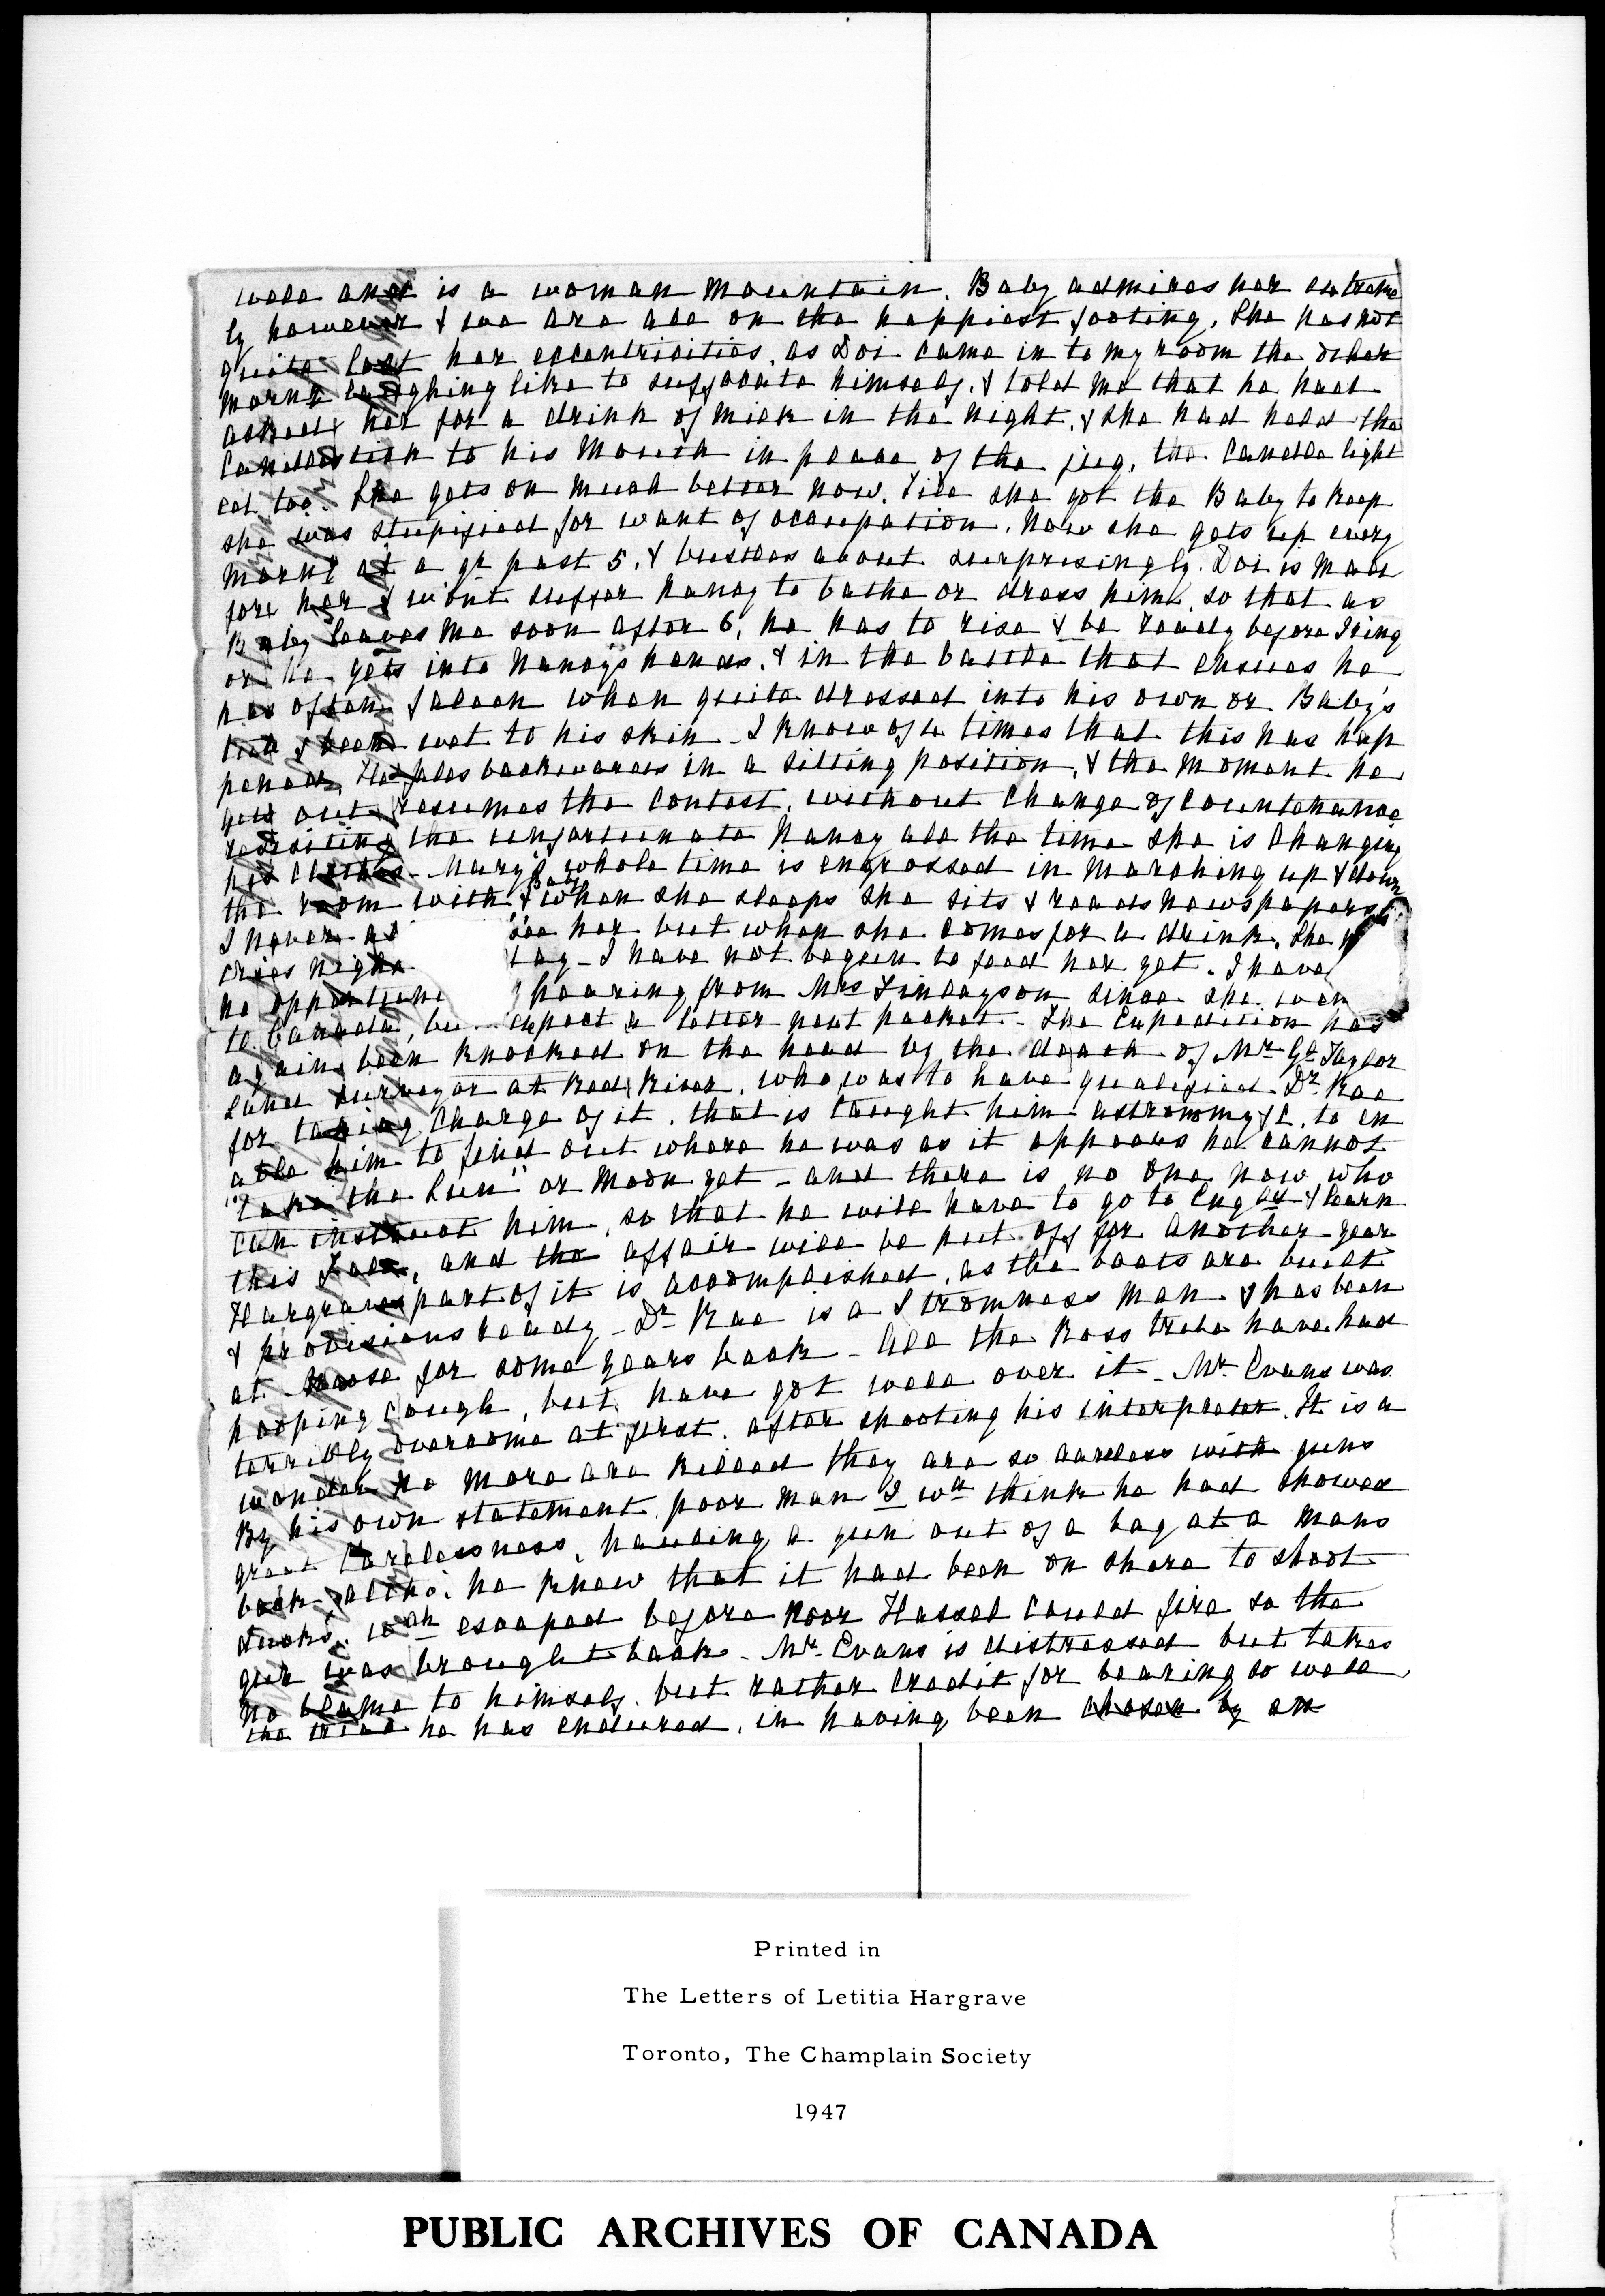 well and is a woman mountain. Baby admires her extreme
ly however & we are all on the happiest footing. She has not
quite lost her eccentricities, as Doi came in to my room the other
morng laughing like to suffocate himself, & told me that he had
asked her for a drink of milk in the night, & she had held the
Candlestick to his mouth in place of the jug, the Candle light
ed too. She gets on much better now. Till she got the Baby to keep
she was stupified for want of occupation. Now she gets up every
morng at a qr past 5, & bustles about surprisingly. Doi is mad
for her & wont suffer Nancy to bathe or dress him, so that as
Baby leaves me soon after 6, he has to rise & be ready before I ring
or he gets into Nancy's hands, & in the battle that ensues he
has often fallen when quite dressed into his own or Baby's
tub & been wet to his skin - I know of 4 times that this has hap
pened. He falls backwards in a sitting position, & the moment he
gets out resumes the contest, without change of countenance
resisting the unfortunate Nancy all the time she is changing
his clothes - Mary's whole time is engrossed in marching up & down
the room with Baby & when she sleeps she sits & reads newspapers
I never as see her but when she comes for a drink. She
cries night day - I have not begun to feed her yet. I have
no opportuni hearing from Mrs Finlayson since she wen
to Canada, bu expect a letter next packet - The Expedition has
again been knocked on the head by the death of Mr Go Taylor
Land Surveyor at Red River, who was to have qualified Dr Rae
for taking charge of it, that is taught him astronomy &c. to en
able him to find out where he was as it appears he cannot
"take the Sun" or Moon yet - and there is no one now who
can instruct him, so that he will have to go to Engld & learn
this fall, and the affair will be put off for another year
Hargraves part of it is accomplished, as the boats are built
& provisions ready - Dr Rae is a Stromness man & has been
at Moose for some years back - All the Ross tribe have had
hooping cough, but have got well over it - Mr Evans was
terribly overcome at first, after shooting his interpreter. It is a
wonder no more are killed they are so careless with guns
By his own statement, poor man I wd think he had showed
great carelessness, hauling a gun out of a bag at a mans
back altho' he knew that it had been on shore to shoot
ducks, wch escaped before poor Hassel could fire so the
gun was brought back - Mr Evans is distressed but takes
no blame to himself, but rather credit for bearing so well
the trial he has endured, in having been chosen by an
Printed in
The Letters of Letitia Hargrave
Toronto, The Champlain Society
1947
PUBLIC ARCHIVES OF CANADA